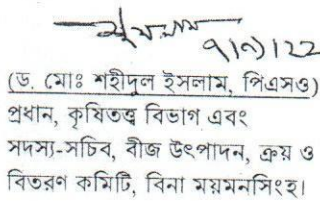 ৭/৭/২২
(ড. মোঃ শহীদুল ইসলাম, পিএসও)
প্রধান, কৃষিতত্ত্ব বিভাগ এবং
সদস্য-সচিব, বীজ উৎপাদন, ক্রয় ও
বিতরণ কমিটি, বিনা ময়মনসিংহ।